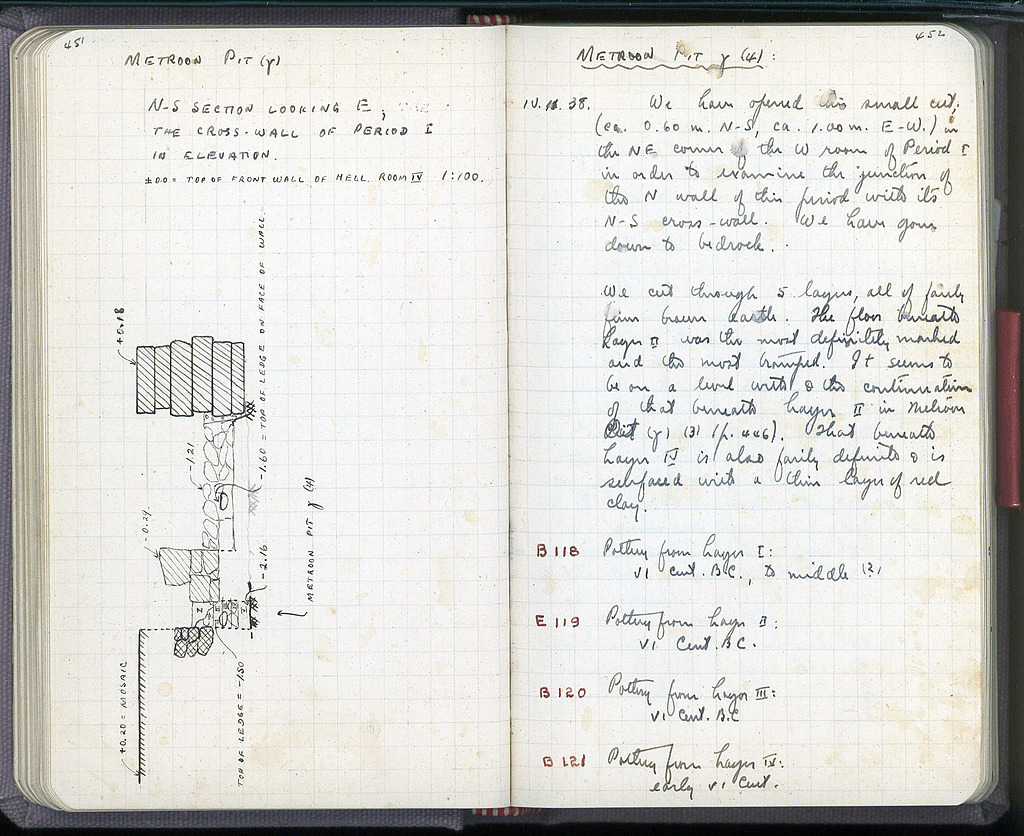 451
METROON PIT (γ)
N-S SECTION LOOKING E,
THE CROSS-WALL OF PERIOD I
IN ELEVATION.
±0.0 = TOP OF FRONT WALL OF HELL. ROOM IV 1:100.
+0.18
-1.21
-0.29
-1.60 = TOP OF LEDGE ON FACE OF WALL
-2.16
METROON PIT γ (4)
I
II
+0.20 = MOSAIC
TOP OF LEDGE = -1.50
452
METROON PIT γ (4):
38. We have opened this small cut,
(ca. 0.60 m. N-S, ca. 1.00 m. E-W.) in
the NE corner of the W room of Period I
in order to examine the junction of
the N wall of this period with its
N-S cross-wall. We have gone
down to bedrock.
We cut through 5 layers, all of fairly
firm brown earth. The floor beneath
Layer II was the most definitely marked
and the most tramped. It seems to
be on a level with & the continuation
of that beneath Layer II in Metroon
Pit (γ) (3) (p. 446). That beneath
Layer IV is also fairly definite & is
surfaced with a thin layer of red
clay.
B 118 Pottery from Layer I:
VI Cent. B.C., to middle (?)
E 119 Pottery from Layer II:
VI Cent. B.C.
B 120 Pottery from Layer III:
VI Cent. B.C
B 121 Pottery from Layer IV:
early VI Cent.